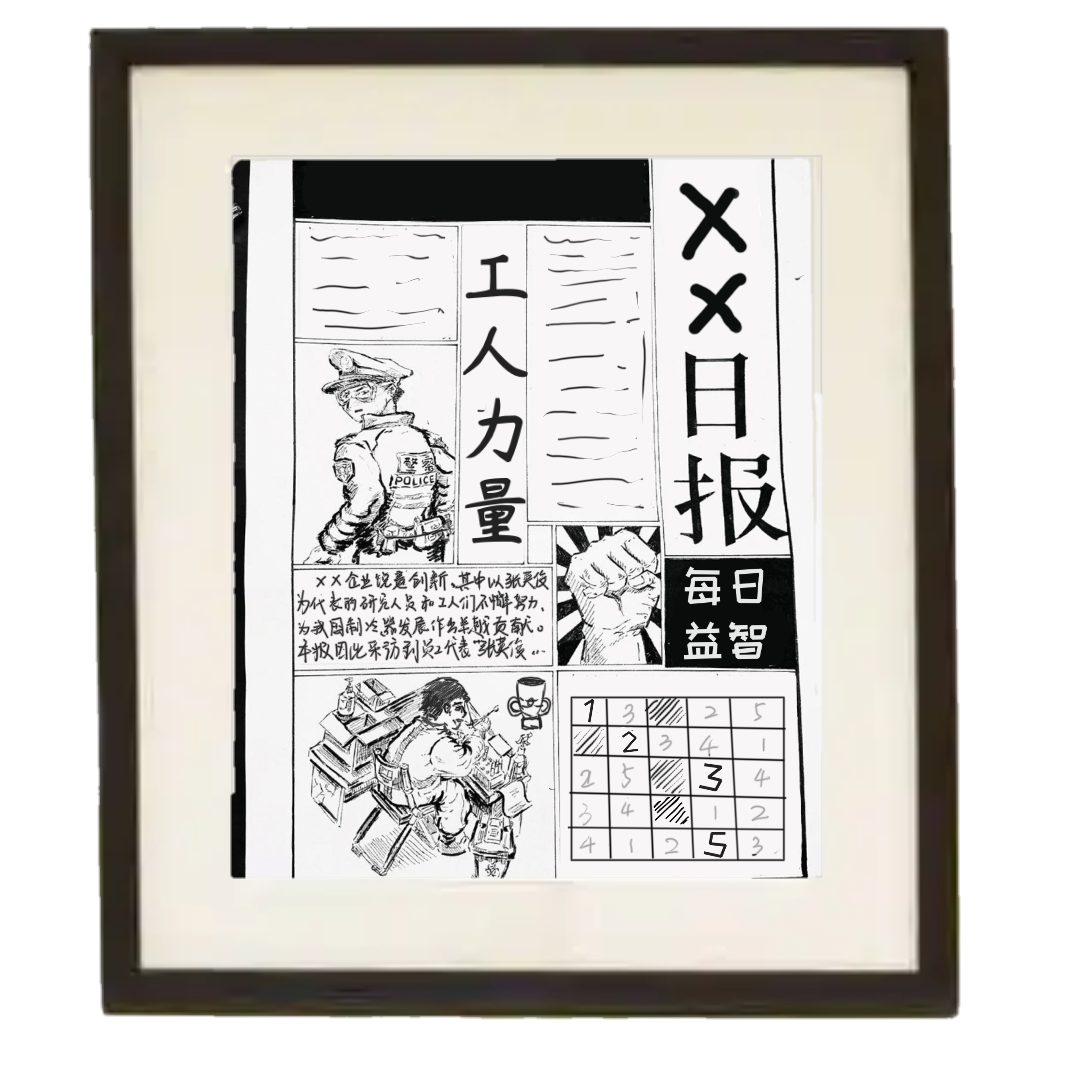 ××日报
每日
益智
工人力量
警察
POLICE
××企业锐意创新、其中以张英俊
为代表的研究人员和工人们不懈努力、
为我国制冷器发展作出卓越贡献。
本报因此采访到员工代表张英俊…
1 3 2 5
2 3 4 1
2 5 3 4
3 4 1 2
4 1 2 5 3